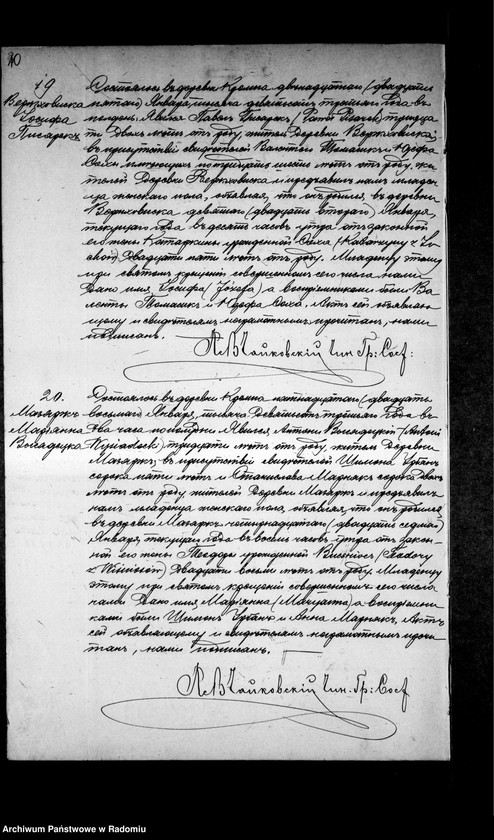 40
19
Верхховиска
Іосифа
Писарекъ
Состоялось въ деревни Кроина двѣнадцатаго (двадцать
пятаго) Января, тысяча девятьсотъ третьяго Года въ
полдень. Явился Павелъ Писарекъ, (Paweł Pisarek) тридца-
ти двохъ лѣтъ отъ роду, житель Деревни Верхховиска,
въ присутствіи свидѣтелей Валентія Томашекъ и Юзефа
Соха, имѣющихъ по тридцать шести лѣтъ отъ роду, жи-
телей Деревни Верхховиска и предъявилъ намъ младен-
ца женскаго пола, объявляя, что онъ родился, въ деревни
Верхховиска девятаго (двадцать втораго) Января,
текущаго года въ десять часовъ утра отъ законной
его жены Катаржины урожденной Соха (Katarzyny z So-
chów) двадцати пяти лѣтъ отъ роду. Младенцу этому
при святомъ крещеніи совершенномъ сего числа нами
Дано имя, Іосифа (Józefa) а воспріемниками были Ва-
лентій Томашекъ и Юзефа Соха. Актъ сей объявляю-
щему и свидѣтелямъ неграмотнымъ прочитанъ, нами
подписанъ.
Чайковскій Чин. Гр: Сост:
20.
Мазяркъ
Марiянна
Состоялось въ деревни Кроина пятнадцатаго (двадцать
восьмаго) Января, тысяча Девятьсотъ третьяго Года въ
два часа по полудни Явился, Антоній (Antoni
) тридцати лѣтъ отъ роду, житель Деревни
Мазяркъ, въ присутствіи свидѣтелей Шимона Урбанъ
сорока пяти лѣтъ и Станислава Марцякъ сорока двохъ
лѣтъ отъ роду, жителей Деревни Мазяркъ и предъявилъ
намъ младенца женскаго пола, объявляя, что онъ родился
въ деревни Мазяркъ четырнадцатаго (двадцать седьмаго)
Января, текущаго года въ восемь часовъ утра отъ закон-
ной его жены Теодоры урожденной (Teodory
z ) двадцати восьми лѣтъ отъ роду. Младенцу
этому при святомъ крещеніи совершенномъ сего числа
нами Дано имя, Марiянна (Maryanna) а воспріемни-
ками были Шимонъ Урбанъ и Анна Марцякъ, Актъ
сей объявляющему и свидѣтелямъ неграмотнымъ прочи-
танъ, нами подписанъ.
Чайковскій Чин. Гр: Сост
Archiwum Państwowe w Radomiu